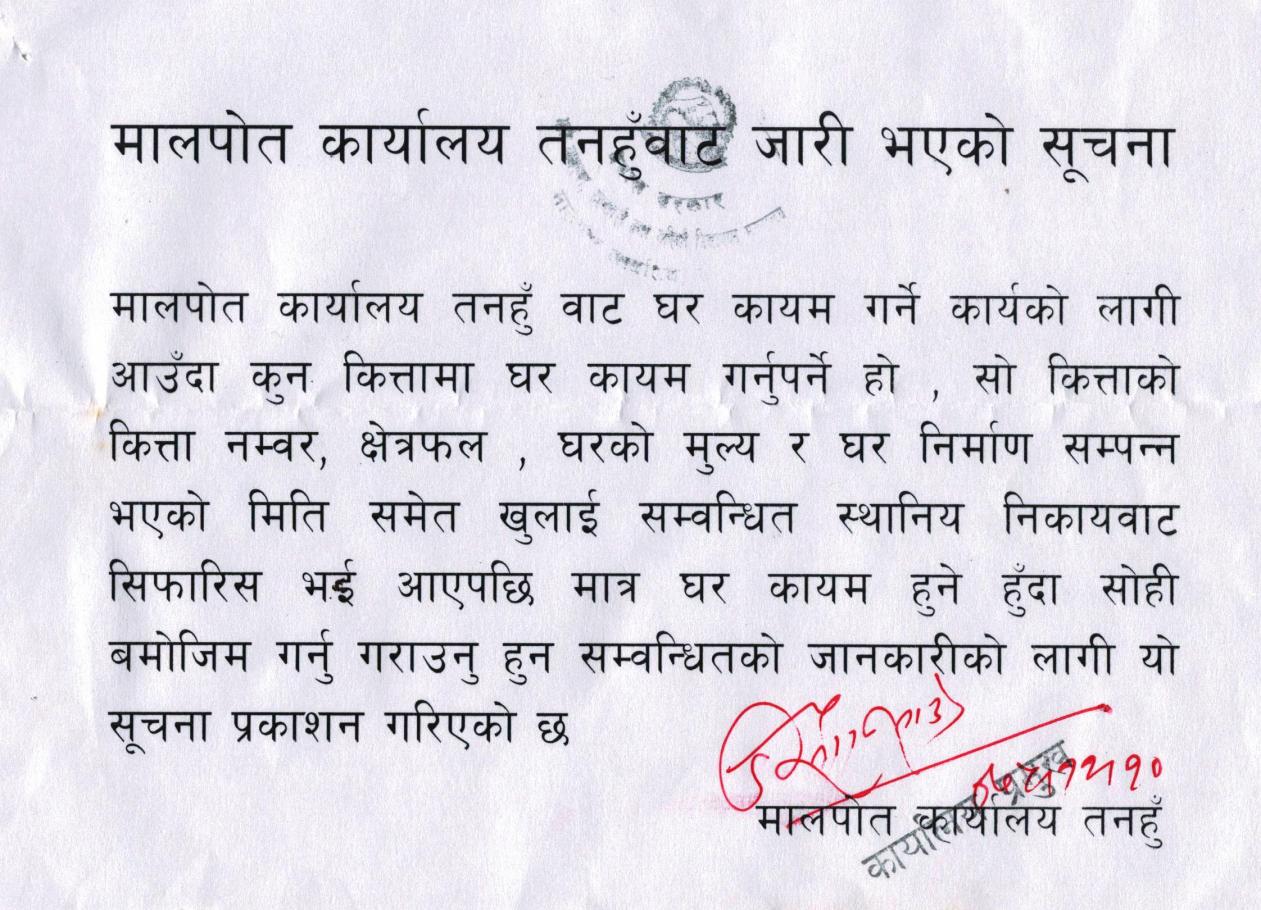 मालपोत कार्यालय तनहुँवाट जारी भएको सूचना
सरकार
मालपोत कार्यालय तनहुँ वाट घर कायम गर्ने कार्यको लागी
आउँदा कुन कित्तामा घर कायम गर्नुपर्ने हो , सो कित्ताको
कित्ता नम्वर, क्षेत्रफल , घरको मुल्य र घर निर्माण सम्पन्न
भएको मिति समेत खुलाई सम्वन्धित स्थानिय निकायवाट
सिफारिस भई आएपछि मात्र घर कायम हुने हुँदा सोही
बमोजिम गर्नु गराउनु हुन सम्वन्धितको जानकारीको लागी यो
सूचना प्रकाशन गरिएको छ
मालपोत कार्यालय तनहुँ
कार्यालय प्रमुख